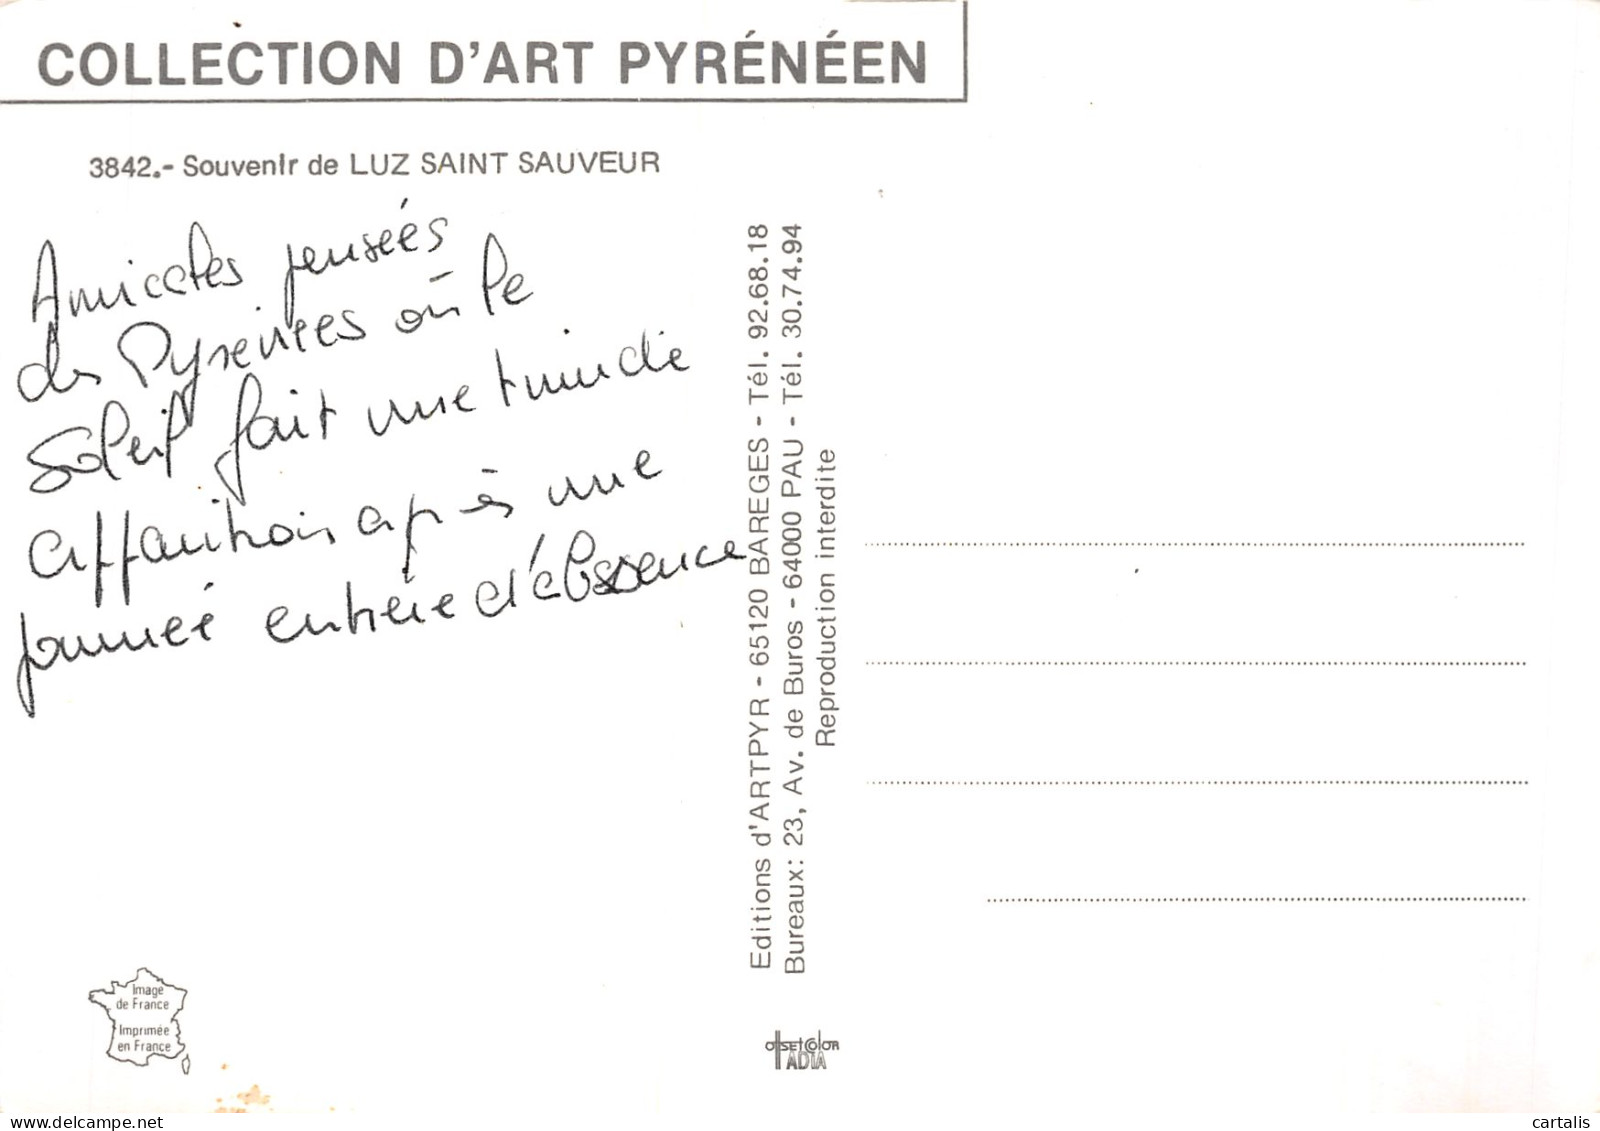 COLLECTION D'ART PYRÉNÉEN
3842.- Souvenir de LUZ SAINT SAUVEUR
Amicales pensées
des Pyrénées où le
soleil fait une timide
apparition après une
journée entière d'absence
Editions d'ARTPYR - 65120 BAREGES - Tél. 92.68.18
Bureaux: 23, Av. de Buros - 64000 PAU - Tél. 30.74.94
Reproduction interdite
Image
de France
Imprimée
en France
OffSEt COlOR
ADIA
cartalis
delcampe.net